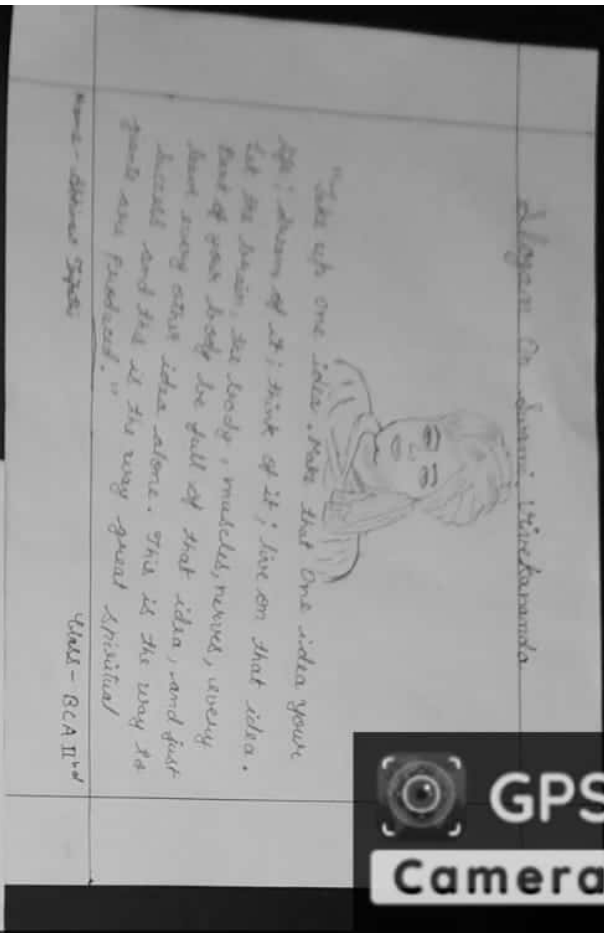 Slogan On Swami Vivekananda
"Take up one idea. Make that one idea your
life; dream of it; think of it; live on that idea.
Let the brain, the body, muscles, nerves, every
Part of your body be full of that idea, and just
leave every other idea alone. This is the way to
success and this is the way great spiritual
giants are Produced."
Name - Class - BCA IInd
GPS
Camera